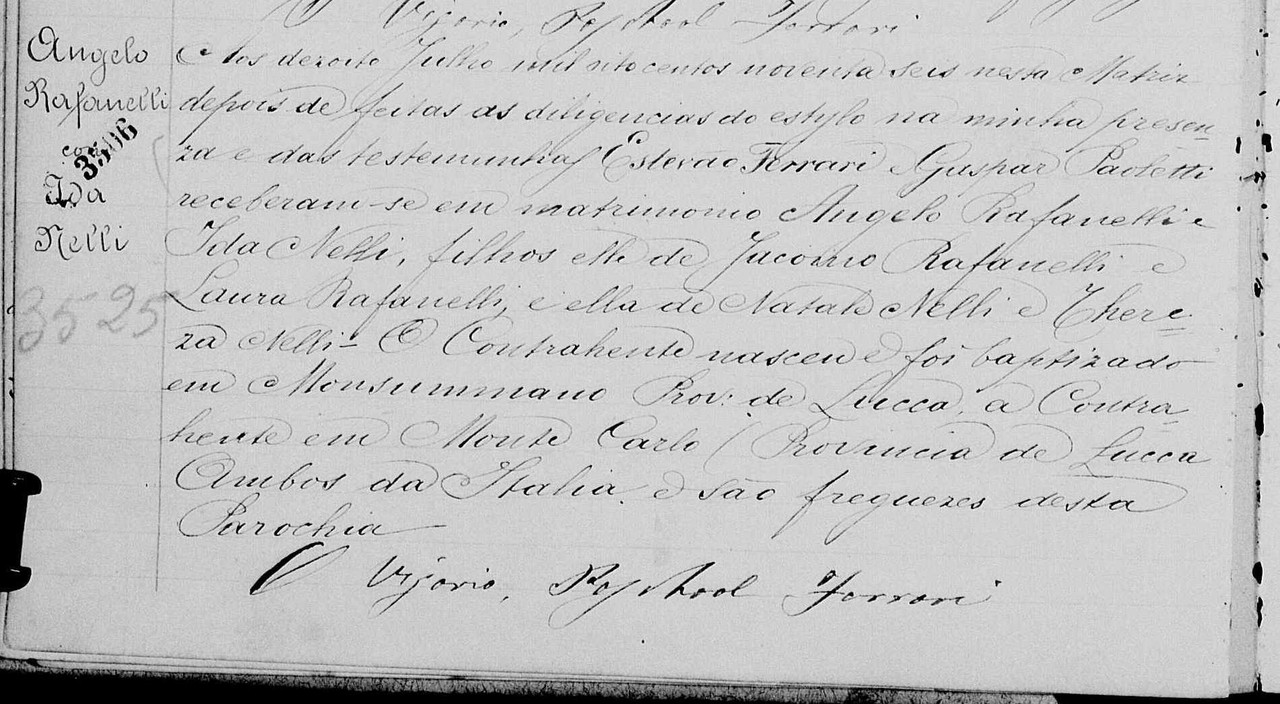 Vigario, Raphael Ferrari
Angelo
Rafanelli
com
3506
Ida
Nelli
3525
Aos dezoito Julho mil oitocentos noventa seis nesta Matriz
depois de feitas as diligencias do estylo na minha presen-
za e das testemunhas Estevão Ferrari e Gaspar Paoletti
receberam-se em matrimonio Angelo Rafanelli e
Ida Nelli, filhos elle de Jacomo Rafanelli e
Laura Rafanelli, e ella de Natale Nelli e There-
za Nelli- O Contrahente nasceu e foi baptizado
em Monsummano Prov: de Lucca, a Contra-
hente em Monte Carlo (Provincia de Lucca
Ambos da Italia. e são freguezes desta
Parochia
O Vigario, Raphael Ferrari